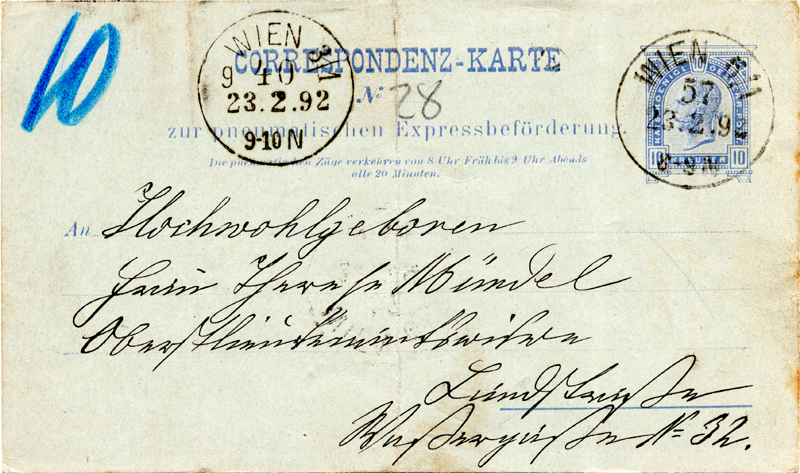 10
CORRESPONDENZ-KARTE
№ 28
zur pneumatischen Expressbeförderung.
Die pneumatischen Züge verkehren von 8 Uhr Früh bis 9 Uhr Abends
alle 20 Minuten.
WIEN 3/1
9 40
23.2.92
9-10 N
WIEN
57
23.2.92
10 KREUZER 10
An Hochwohlgeboren
Frau Therese Mündel
Oberstlieutenantswitwe
Landstraße
Waßergaße № 32.